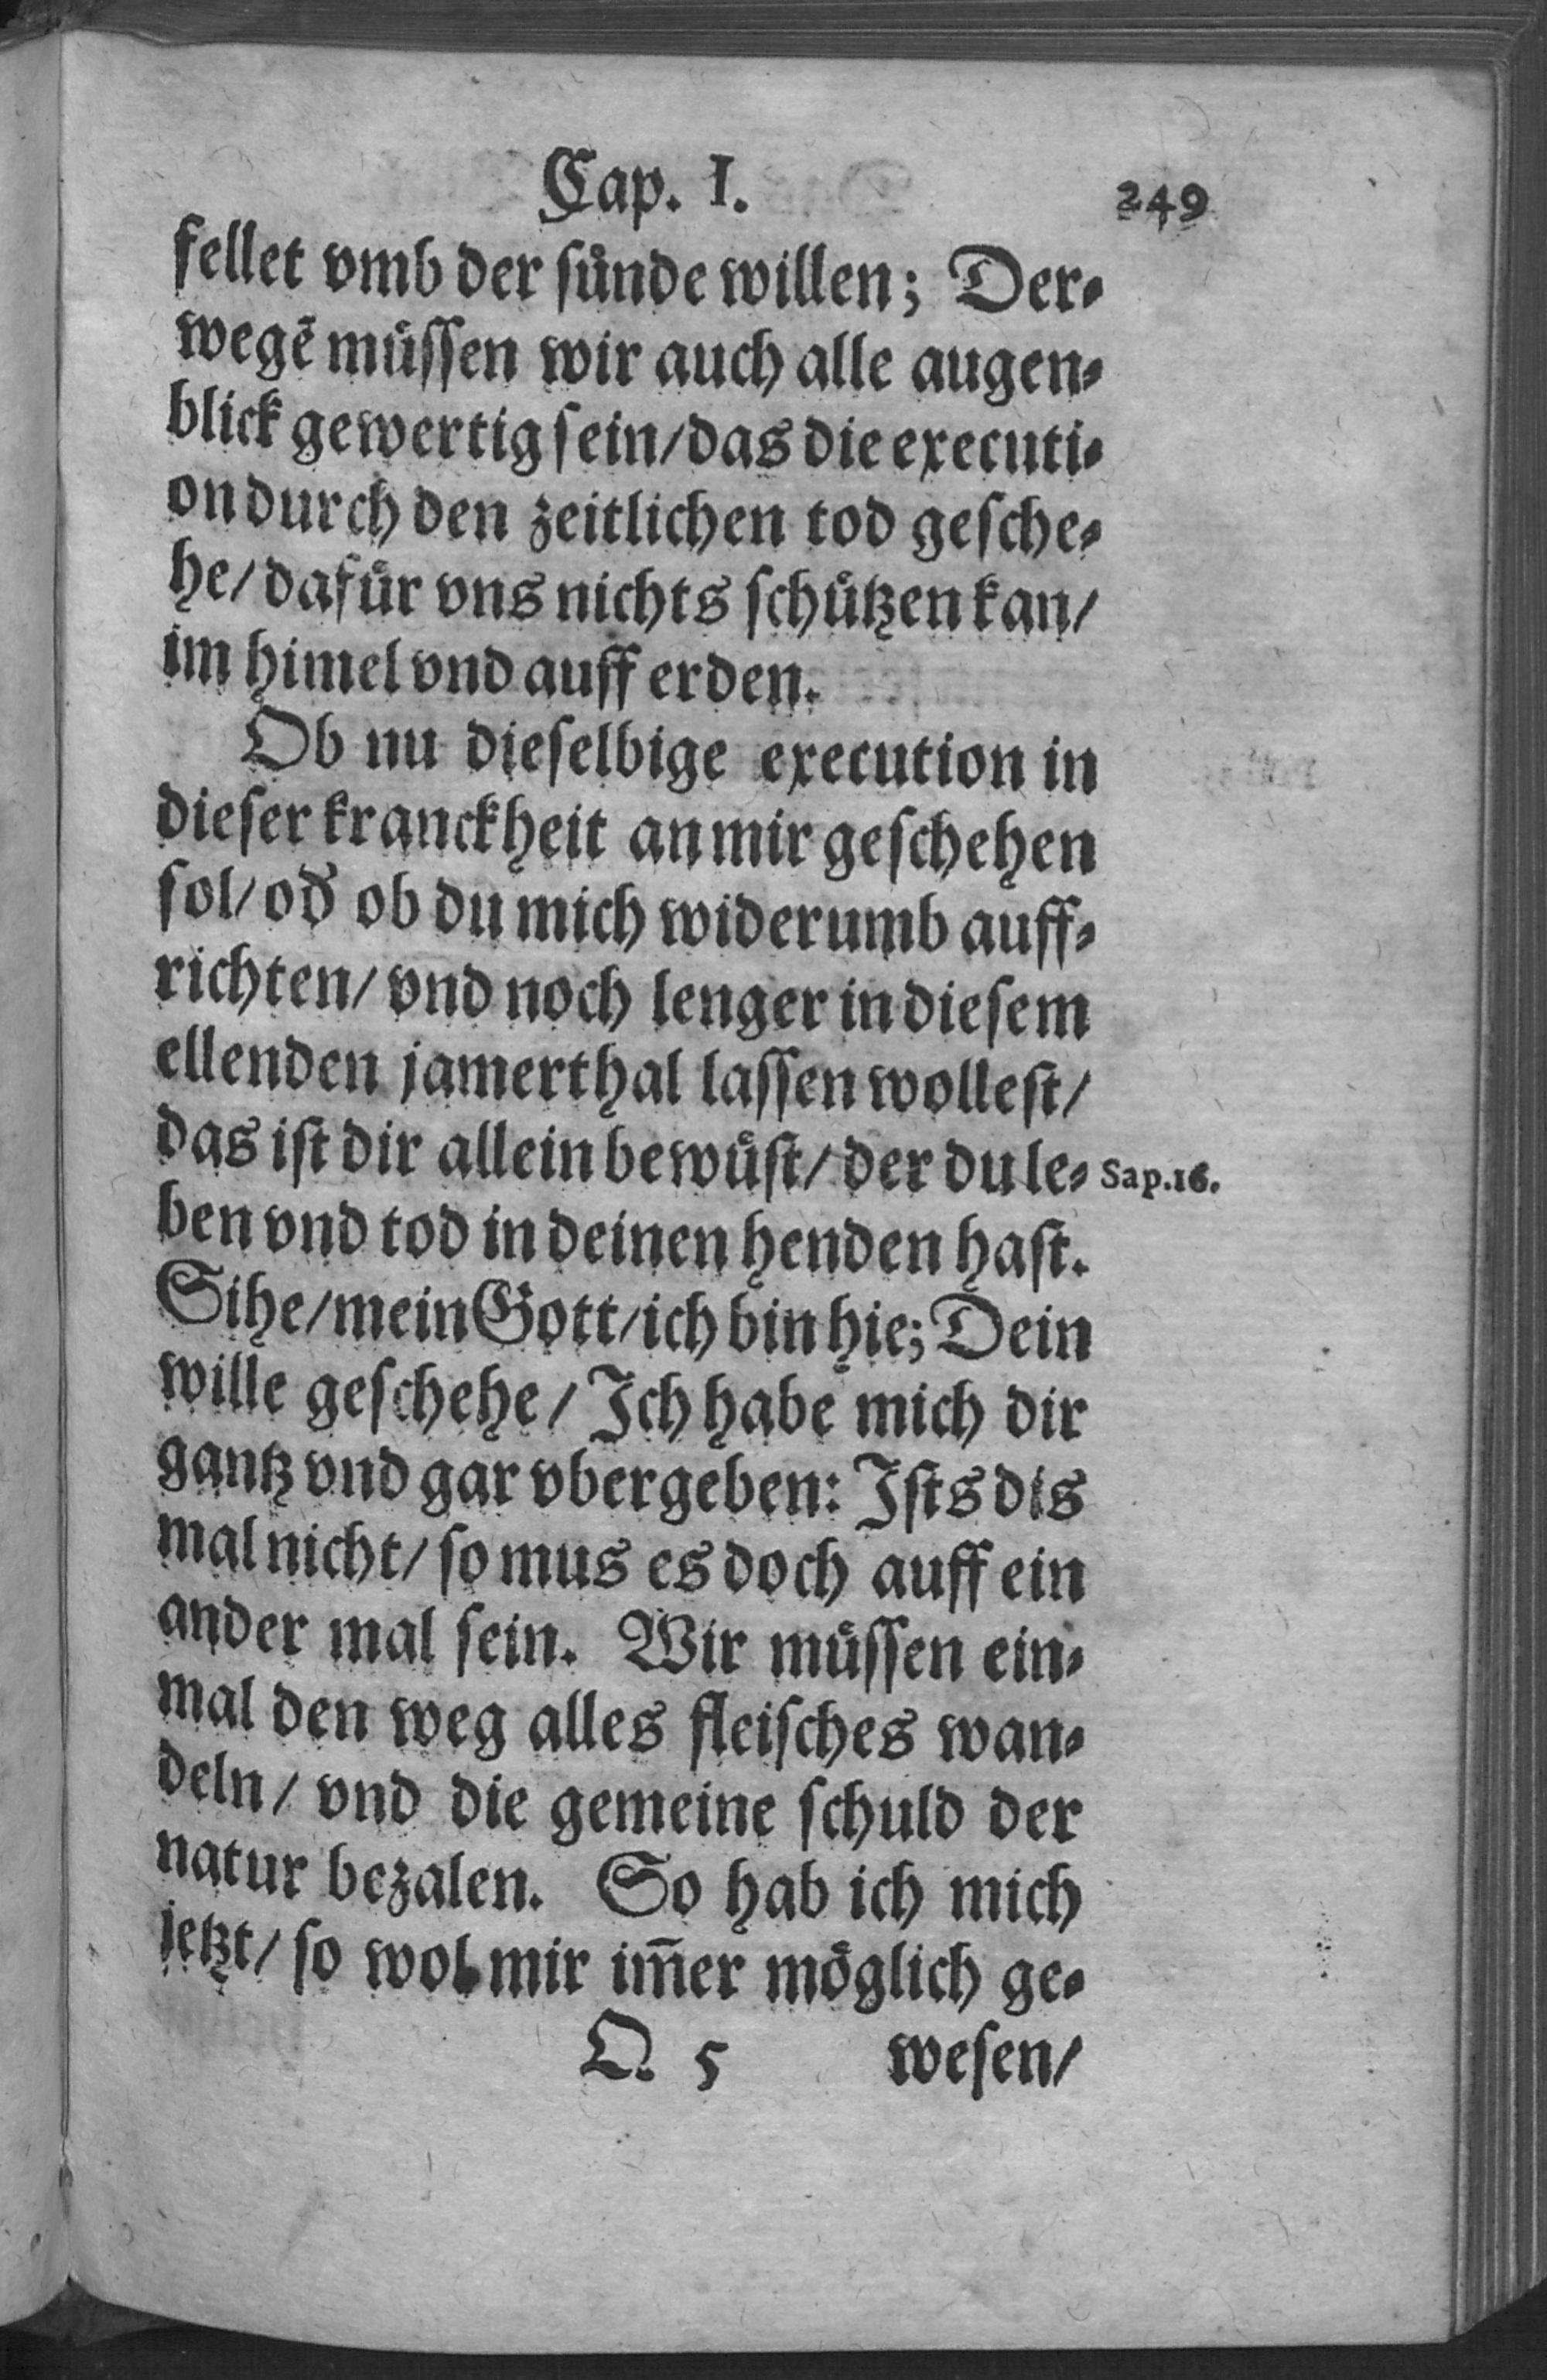 Cap. I. 249
fellet vmb der ſuͤnde willen; Der⸗
wegē muͤſſen wir auch alle augen⸗
blick gewertig ſein/das die executi⸗
on durch den zeitlichen tod geſche⸗
he/ dafuͤr vns nichts ſchuͤtzen kan/
im himel vnd auff erden.
Ob nu dieſelbige execution in
dieſer kranckheit an mir geſchehen
ſol/ od̕ ob du mich widerumb auff⸗
richten/ vnd noch lenger in dieſem
ellenden jamerthal laſſen wolleſt/
das iſt dir allein bewuͤſt/ der du le⸗ Sap.16.
ben vnd tod in deinen henden haſt.
Sihe/mein Gott/ich bin hie; Dein
wille geſchehe/ Ich habe mich dir
gantz vnd gar vbergeben: Iſts dis
mal nicht/ ſo mus es doch auff ein
ander mal ſein. Wir muͤſſen ein⸗
mal den weg alles fleiſches wan⸗
deln/ vnd die gemeine ſchuld der
natur bezalen. So hab ich mich
jetzt/ ſo wol mir im̄er moͤglich ge⸗
Q 5 weſen/